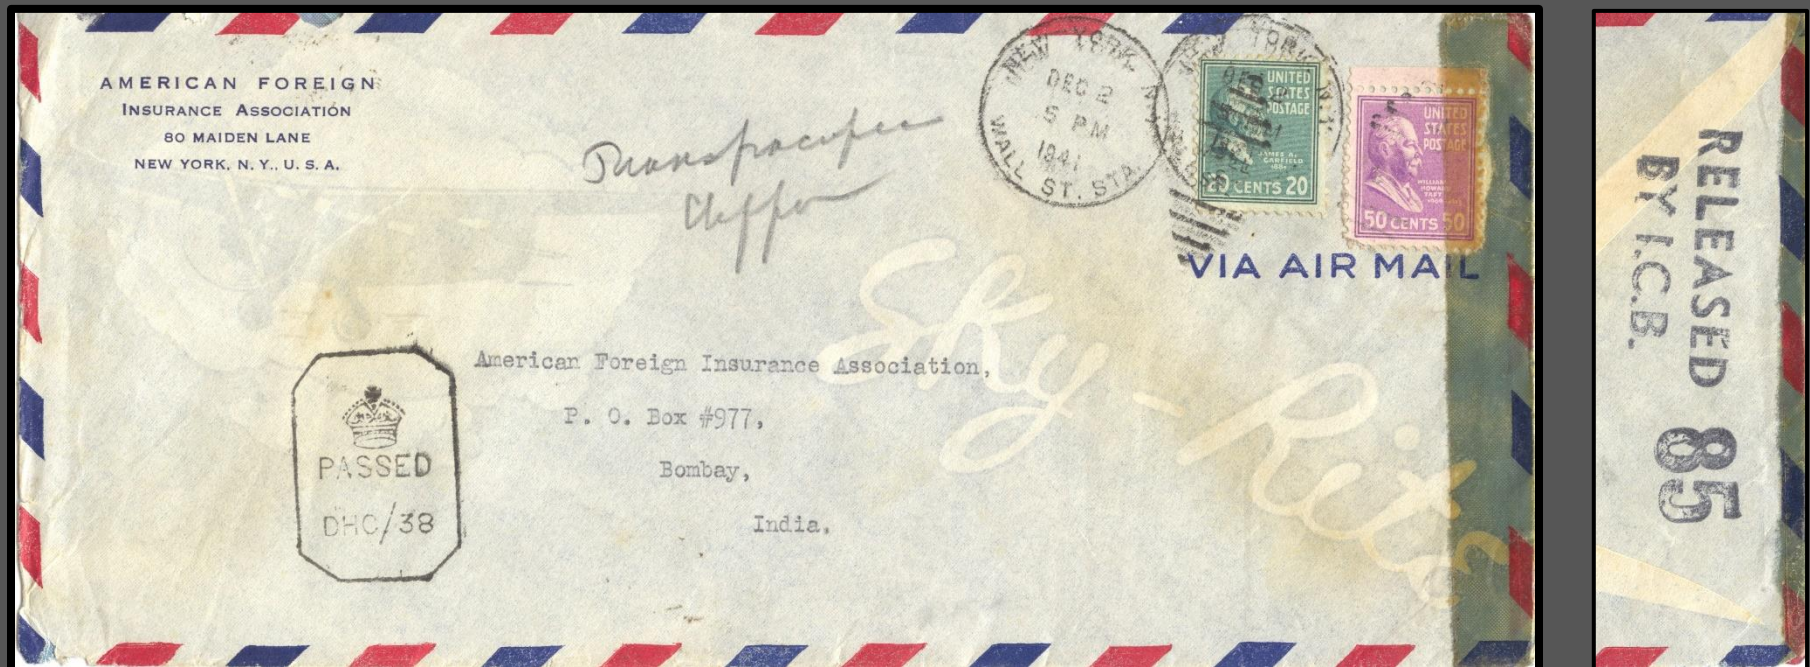 AMERICAN FOREIGN
INSURANCE ASSOCIATION
80 MAIDEN LANE
NEW YORK, N. Y., U. S. A.
Transpacific
Clipper
NEW YORK, N.Y.
DEC 2
5 PM
1941
WALL ST. STA.
UNITED
STATES
POSTAGE
JAMES A.
GARFIELD
20 CENTS 20
UNITED
STATES
POSTAGE
WILLIAM
HOWARD
TAFT
50 CENTS 50
VIA AIR MAIL
Sky-Rite
American Foreign Insurance Association,
P. O. Box #977,
Bombay,
India.
PASSED
DHC/38
RELEASED 85
BY I.C.B.